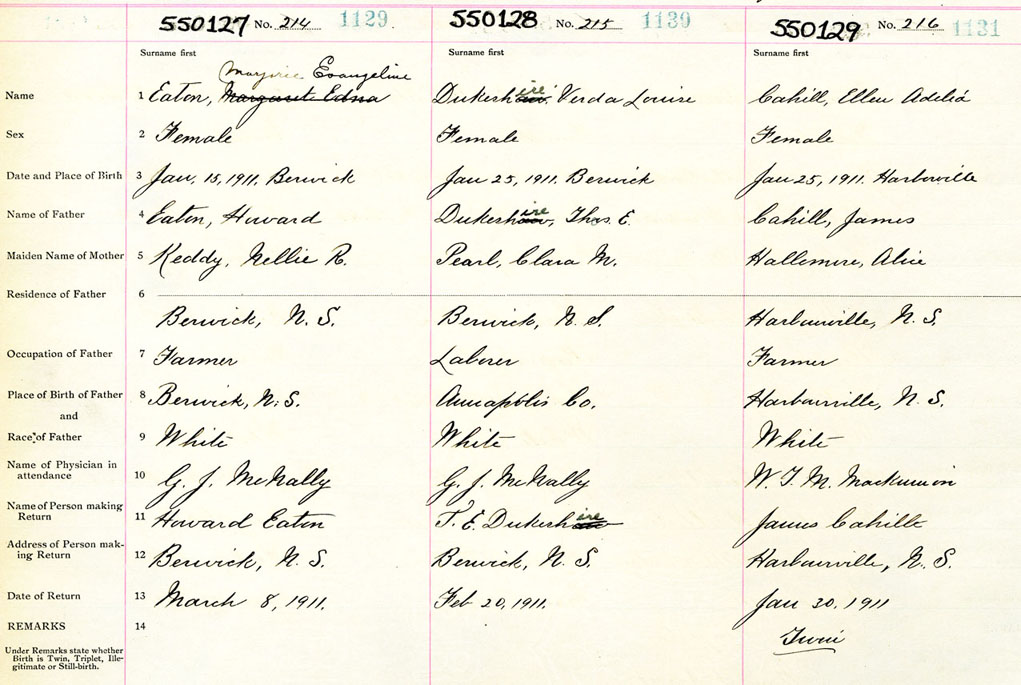 550127 No. 214 1129 550128 No. 215 1130 550129 No. 216 1131
Surname first Surname first Surname first
Marjorie Evangeline
Name 1 Eaton, Margaret Edna Dukeshaw ire, Verda Louise Cahill, Ellen Adelia
Sex 2 Female Female Female
Date and Place of Birth 3 Jan. 15, 1911. Berwick Jan 25, 1911. Berwick Jan 25, 1911. Harborville
Name of Father 4 Eaton, Howard Dukeshaw ire, Thos. E. Cahill, James
Maiden Name of Mother 5 Keddy, Nellie R. Pearl, Clara M. Hallemore, Alice
Residence of Father 6
Berwick, N. S. Berwick, N. S. Harbourville, N. S.
Occupation of Father 7 Farmer Laborer Farmer
Place of Birth of Father 8 Berwick, N. S. Annapolis Co. Harbourville, N. S.
and
Race of Father 9 White White White
Name of Physician in
attendance 10 G. J. McNally G. J. McNally W. T. M. Mackinnon
Name of Person making
Return 11 Howard Eaton T. E. Dukeshaw ire James Cahill
Address of Person mak-
ing Return 12 Berwick, N. S. Berwick, N. S. Harbourville, N. S.
Date of Return 13 March 8, 1911. Feb 20, 1911. Jan 30. 1911
REMARKS 14 Twin
Under Remarks state whether
Birth is Twin, Triplet, Ille-
gitimate or Still-birth.